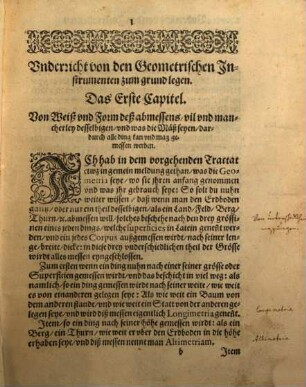 1
Vnderricht von den Geometrischen In-
strumenten zum grund legen.
Das Erste Capitel.
Von Weiß vnd Form deß abmessens/ vil vnd man-
cherley desselbigen/ vnd was die Mäß seyen/ dar-
durch alle ding kan vnd mag ge-
messen werden.
Ich hab in dem vorgehenden Tractat
in gemein meldung gethan/ was die Geo-
metria seye/ wo sie jhren anfang genommen
vnd was jhr gebrauch seye: So solt du nuhn
weiter wissen/ daß wenn man den Erdboden
gantz/ oder nur ein theil desselbigen/ als ein Land/ Feld/ Berg/
Thurn/ ꝛc. abmessen will/ solches beschehe nach den drey grössi-
nen eines jeden dings/ welche superficies in Latein genent wer-
den/ vnd ein jedes Corpus außgemessen wird/ nach seiner lenge/
breite/ dicke: in diese drey vnderschiedlichen theil der Grösse
wirdt alles messen eyngeschlossen.
Zum ersten wenn ein ding nuhn nach einer seiner grösse oder
Superficien gemessen wird/ vnd das beschicht in viel weg: als
namlich/ so ein ding gemessen wirdt nach seiner weite/ wie weit
es von einanderen gelegen seye: Als wie weit ein Baum von
dem anderen stande/ vnd wie weit ein Statt von der anderen ge-
legen seye/ vnd wird diß messen eigentlich Longimetria genent.
Item/ so ein ding nach seiner höhe gemessen wirdt: als ein
Berg/ ein Thurn/ wie weit er ober den Erdboden in die höhe
erhaben seye/ vnd diß messen nennt man Altimetriam.
b
Item
Longimetria
Altimetria